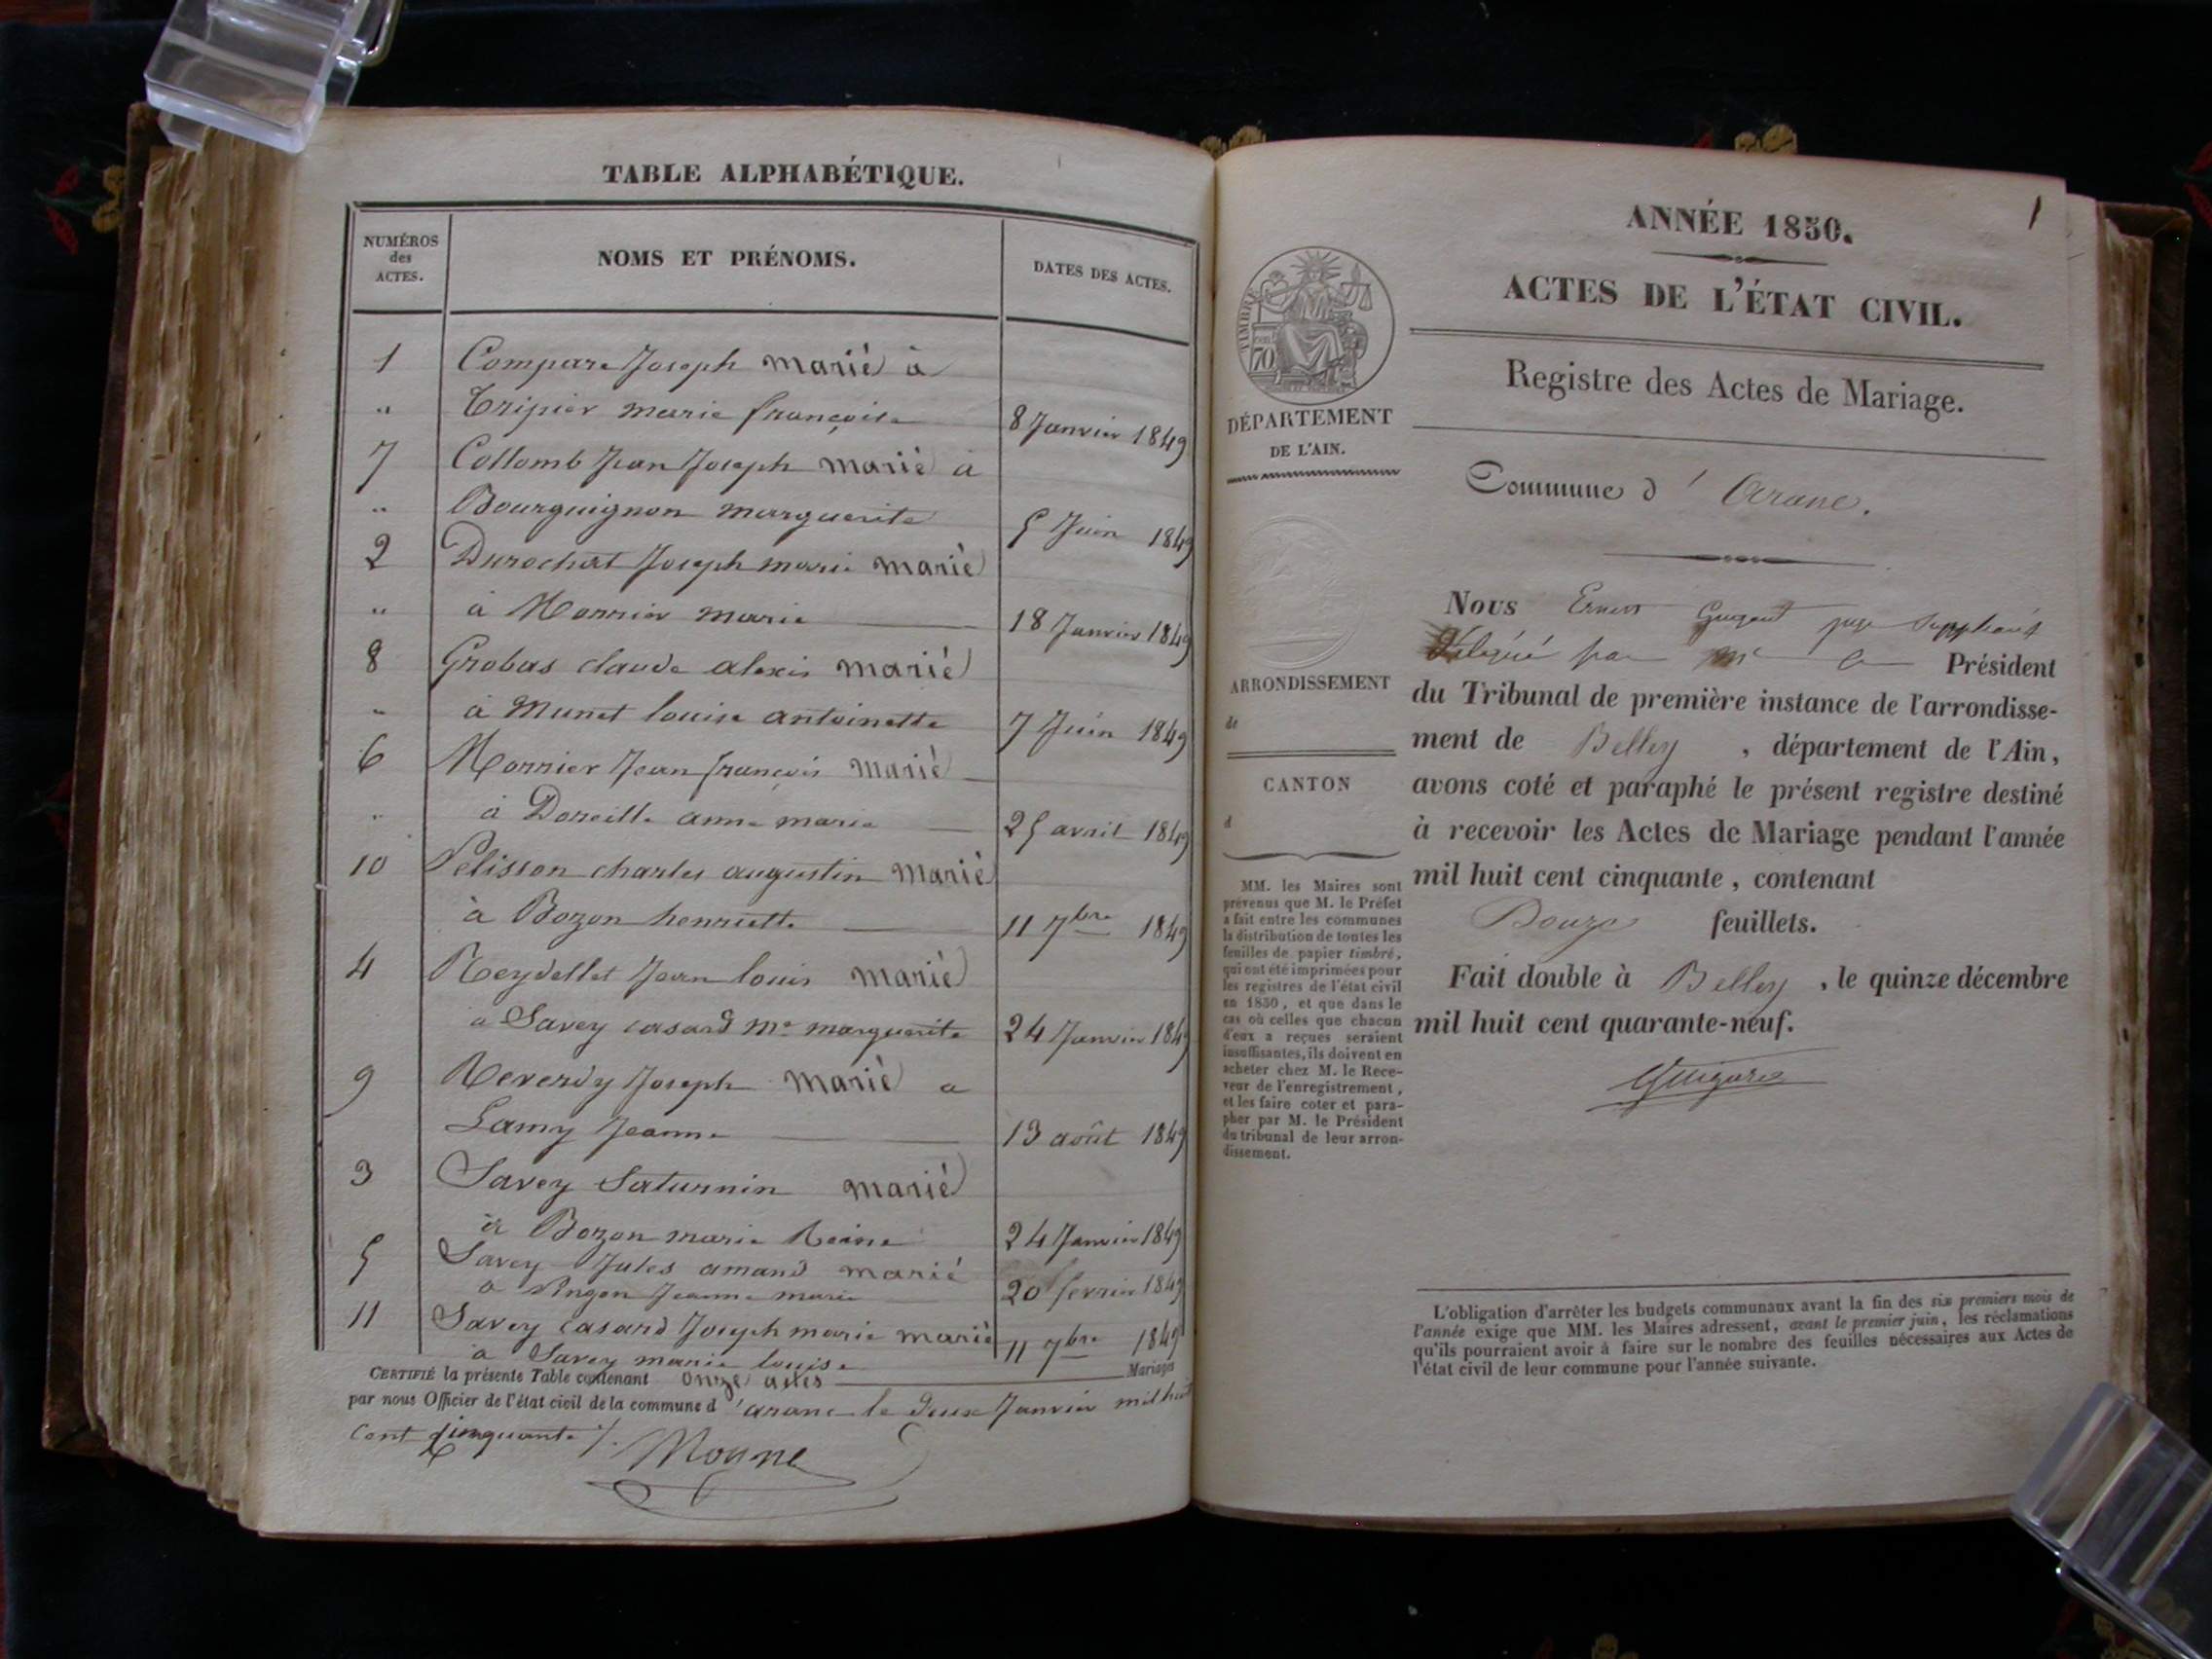 TABLE ALPHABÉTIQUE.
NUMÉROS des ACTES.
NOMS ET PRÉNOMS.
DATES DES ACTES.
1 Compare Joseph marié à
" Tripier marie françoise 8 Janvier 1849
7 Collomb Jean Joseph marié à
" Bourguignon marguerite 5 Juin 1849
2 Durochat Joseph marie marié
" à Monnier marie 18 Janvier 1849
8 Grobas claude alexis marié
" à Munet louise antoinette 7 Juin 1849
6 Monnier Jean françois marié
" à anne marie 25 avril 1849
10 Pelisson charles augustin marié
à Bozon henriette 11 7bre 1849
4 Reydellet Jean louis marié
a Savey casard me marguerite 24 Janvier 1849
9 Reverdy Joseph marié a
Lamy Jeanne 13 août 1849
3 Savey Saturnin marié
à Bozon marie Reine 24 Janvier 1849
5 Savey Jules amand marié
a Jeanne marie 20 fevrier 1849
11 Savey casard Joseph marie marié
a Savey marie louise 11 7bre 1849
CERTIFIÉ la présente Table contenant onze actes Mariages
par nous Officier de l'état civil de la commune d'arane le deux Janvier mil huit
cent cinquante /.
1
ANNÉE 1850.
ACTES DE L'ÉTAT CIVIL.
Registre des Actes de Mariage.
TIMBRE
70
DÉPARTEMENT
DE L'AIN.
Commune d' Arane.
ARRONDISSEMENT
de
CANTON
d
MM. les Maires sont
prévenus que M. le Préfet
a fait entre les communes
la distribution de toutes les
feuilles de papier timbré,
qui ont été imprimées pour
les registres de l'état civil
en 1850, et que dans le
cas où celles que chacun
d'eux a reçues seraient
insuffisantes, ils doivent en
acheter chez M. le Rece-
veur de l'enregistrement,
et les faire coter et para-
pher par M. le Président
du tribunal de leur arron-
dissement.
Nous juge suppléant
Délégué par Mr le Président
du Tribunal de première instance de l'arrondisse-
ment de Belley , département de l'Ain,
avons coté et paraphé le présent registre destiné
à recevoir les Actes de Mariage pendant l'année
mil huit cent cinquante, contenant
Douze feuillets.
Fait double à Belley , le quinze décembre
mil huit cent quarante-neuf.
L'obligation d'arrêter les budgets communaux avant la fin des six premiers mois de
l'année exige que MM. les Maires adressent, avant le premier juin, les réclamations
qu'ils pourraient avoir à faire sur le nombre des feuilles nécessaires aux Actes de
l'état civil de leur commune pour l'année suivante.